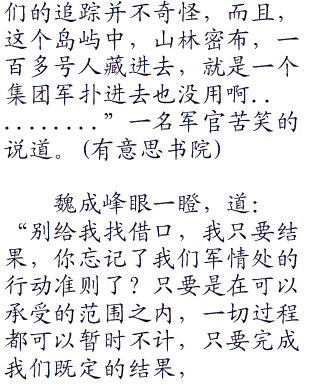 们的追踪并不奇怪，而且，
这个岛屿中，山林密布，一
百多号人藏进去，就是一个
集团军扑进去也没用啊．．
．．．．．．．．”一名军官苦笑的
说道。（有意思书院）
魏成峰眼一瞪，道：
“别给我找借口，我只要结
果，你忘记了我们军情处的
行动准则了？只要是在可以
承受的范围之内，一切过程
都可以暂时不计，只要完成
我们既定的结果，